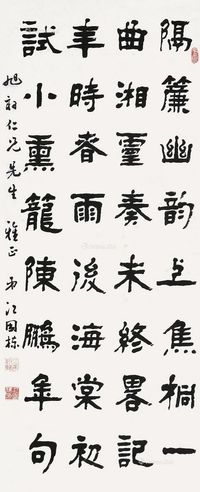 隔簾幽韵上焦桐一
曲湘靈奏未終畧記
年時春雨後海棠初
試小熏籠陳鵬年句
旭初仁兄先生雅正 弟江国栋